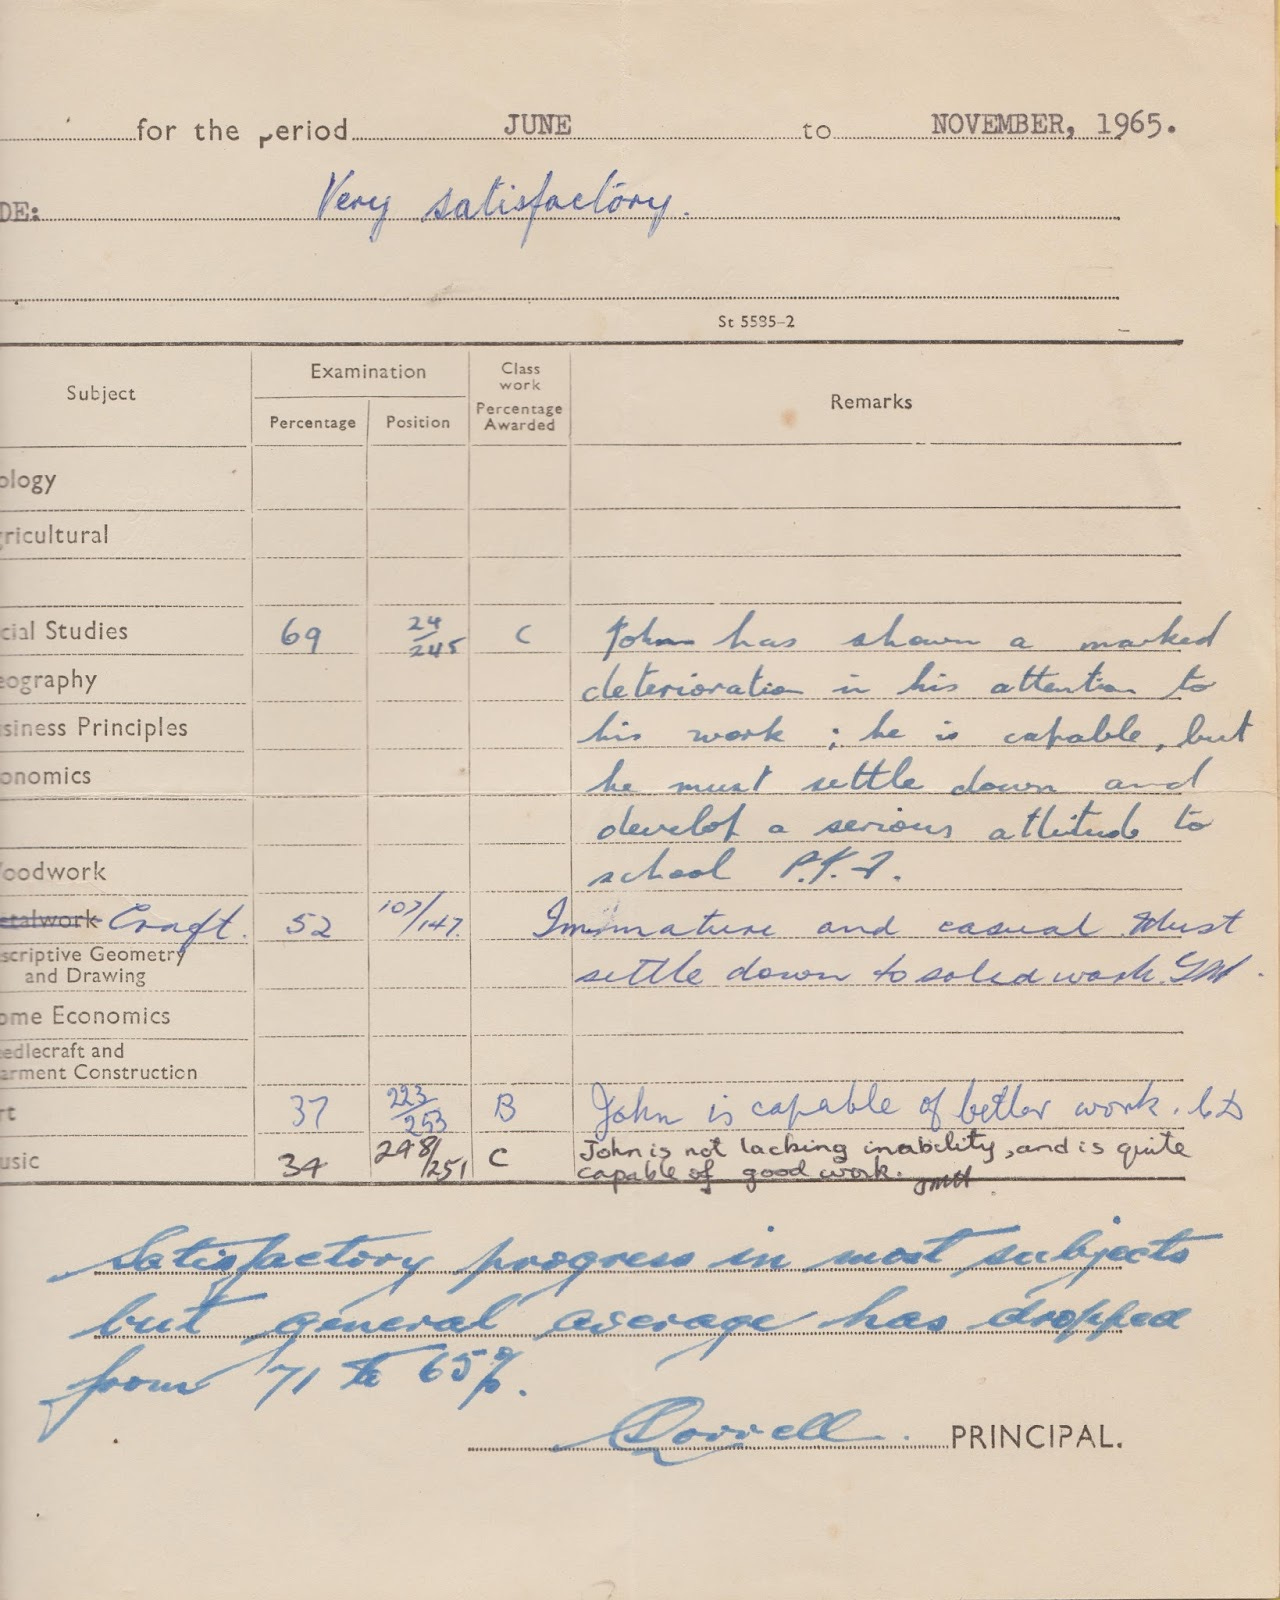 for the period JUNE to NOVEMBER, 1965.
DE: Very satisfactory.
St 5535-2
Subject Examination Class work Remarks
Percentage Position Percentage Awarded
ology
gricultural
cial Studies 69 24/245 C John has shown a marked
eography deterioration in his attention to
siness Principles his work; he is capable, but
onomics he must settle down and
develop a serious attitude to
oodwork school P.K.J.
etalwork Craft. 52 107/147 Immature and casual. Must
scriptive Geometry and Drawing settle down to solid work.
ome Economics
edlecraft and
arment Construction
rt 37 223/253 B John is capable of better work.
usic 34 248/251 C John is not lacking in ability, and is quite
capable of good work.
Satisfactory progress in most subjects
but general average has dropped
from 71 to 65%.
PRINCIPAL.